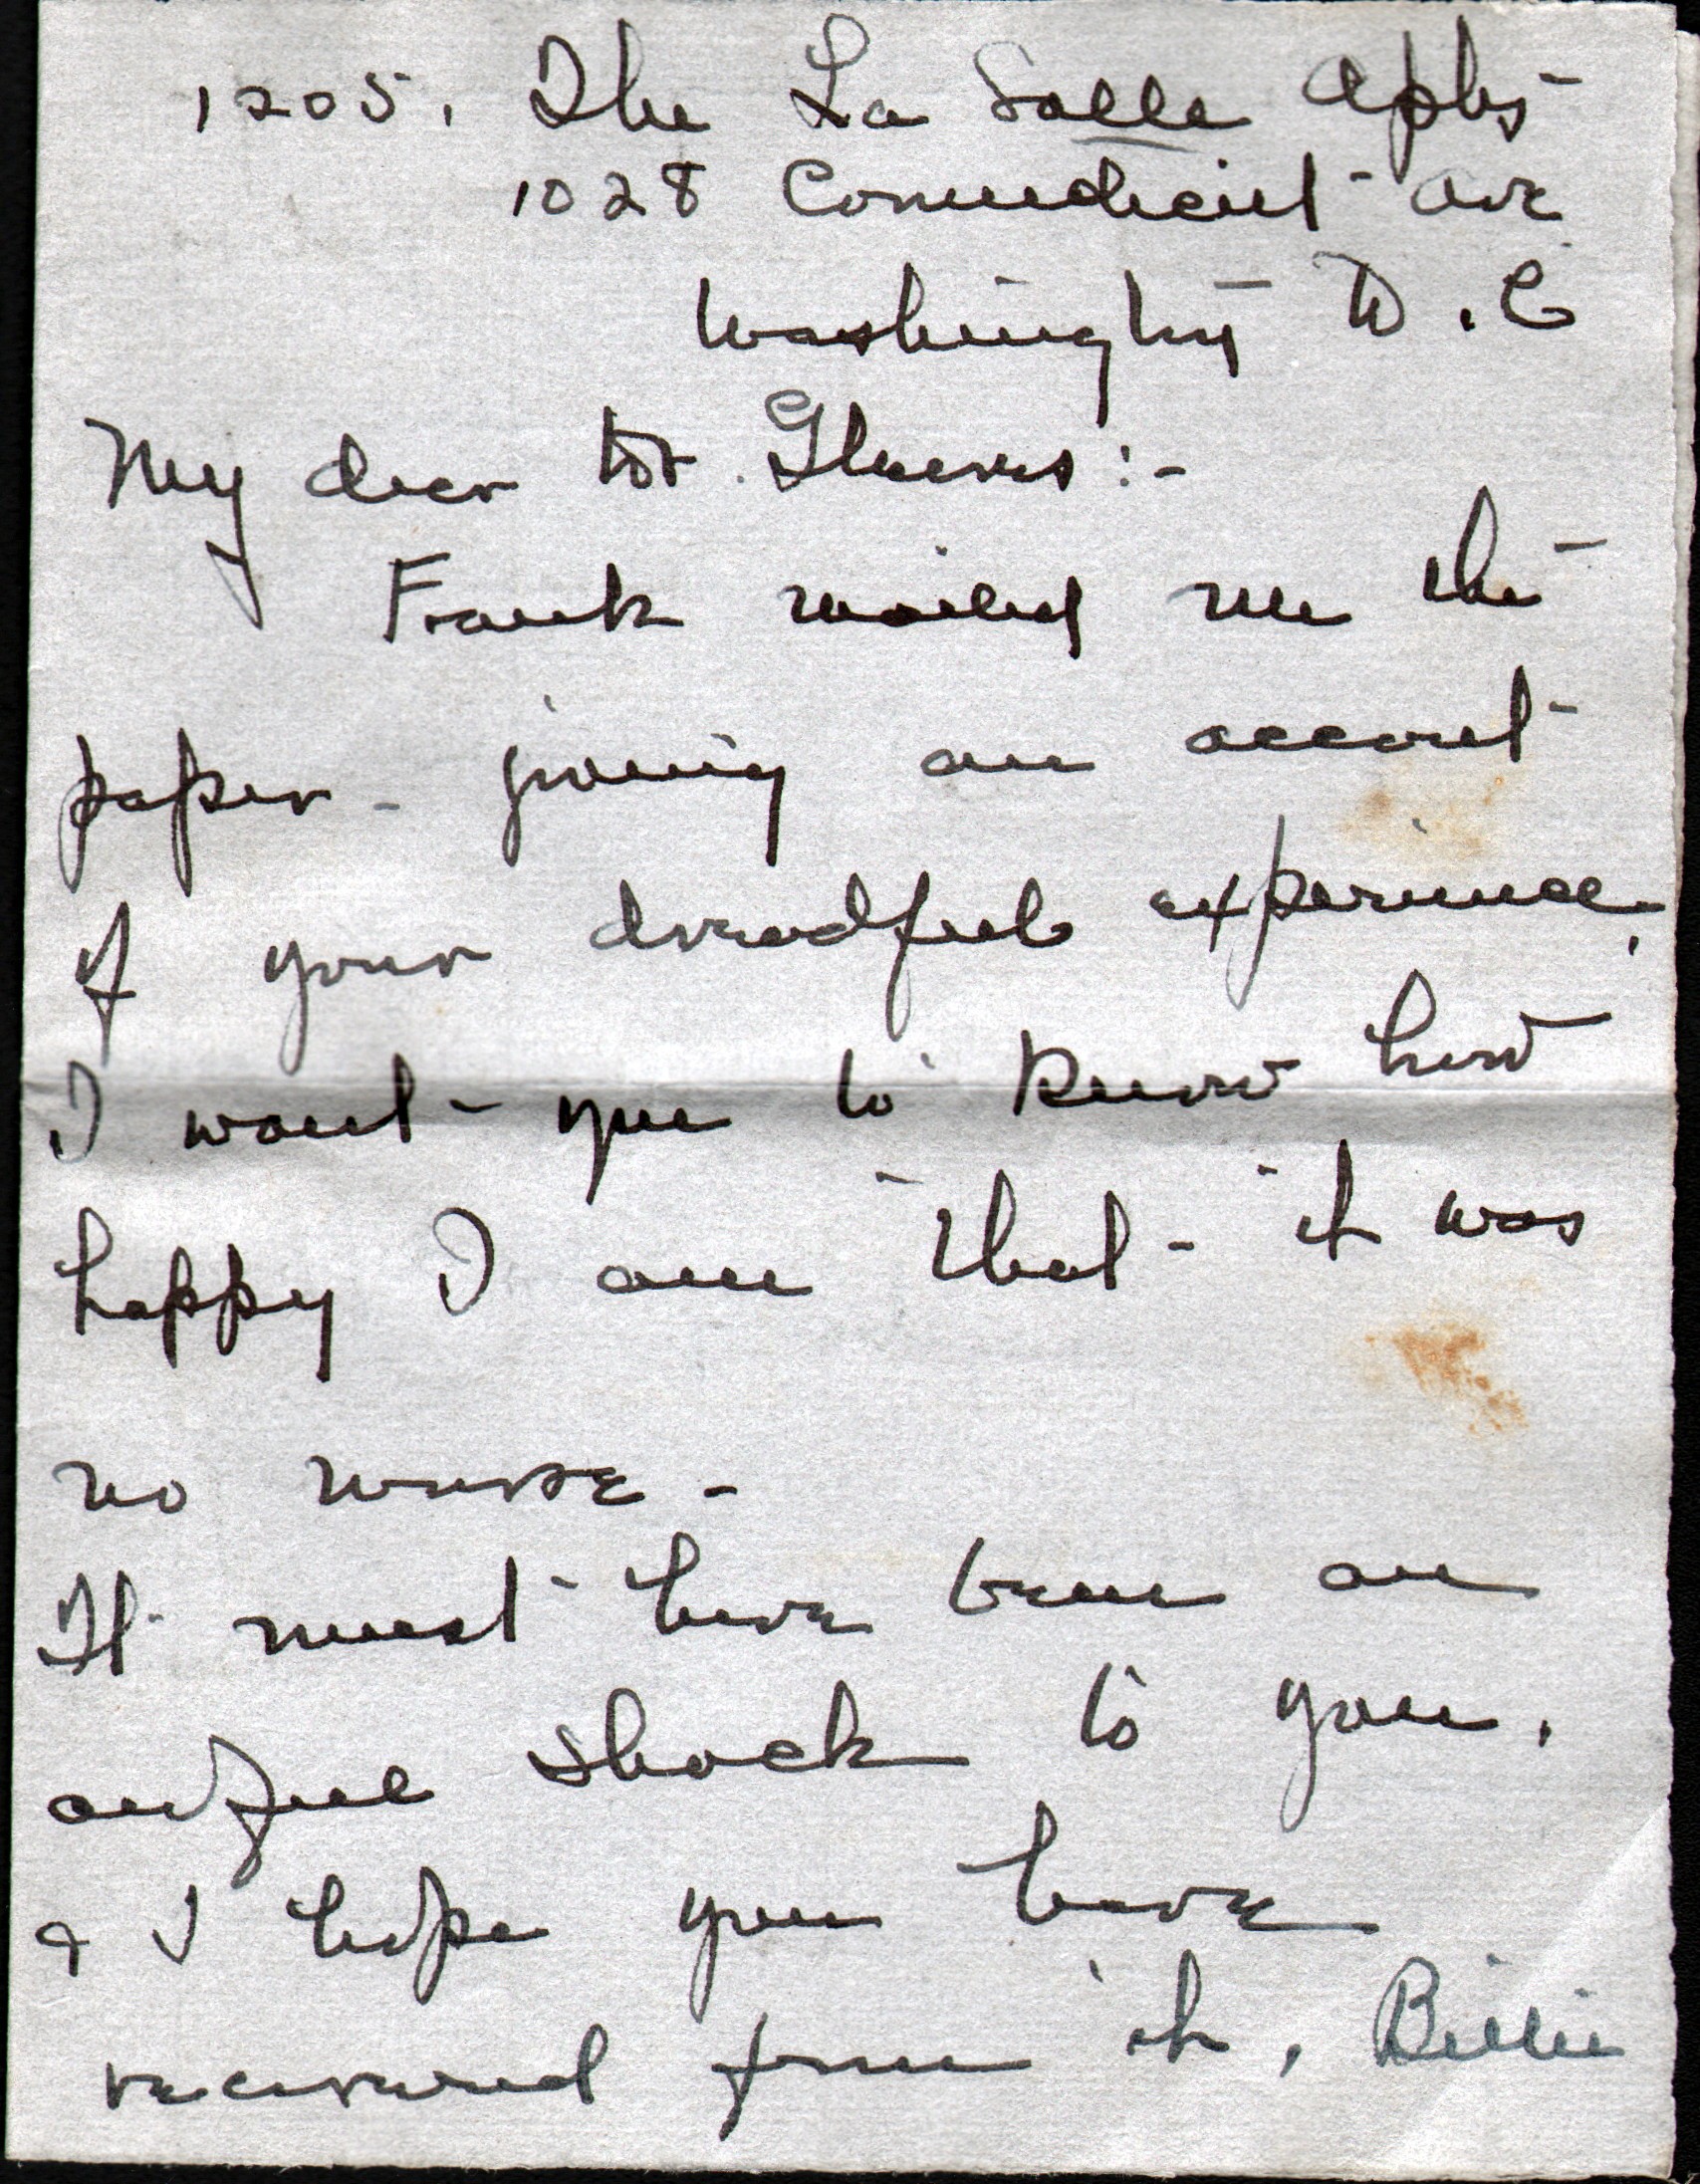 1205, The La Salle Apts
1028 Connecticut Ave
Washington D.C
My dear Mr.
Frank mailed me the
paper - giving an account
of your dreadful experience,
I want you to know how
happy I am that it was
no worse -
It must have been an
awful shock to you,
& I hope you have
recovered from it, Billie